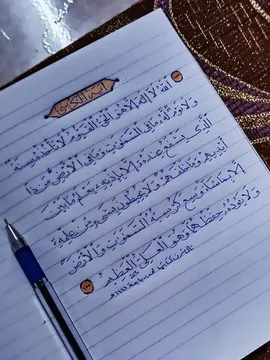 آية الكرسي
اللَّهُ لَا إِلَٰهَ إِلَّا هُوَ الْحَيُّ الْقَيُّومُ لَا تَأْخُذُهُ سِنَةٌ
وَلَا نَوْمٌ لَهُ مَا فِي السَّمَاوَاتِ وَمَا فِي الْأَرْضِ مَنْ ذَا
الَّذِي يَشْفَعُ عِنْدَهُ إِلَّا بِإِذْنِهِ يَعْلَمُ مَا بَيْنَ
أَيْدِيهِمْ وَمَا خَلْفَهُمْ وَلَا يُحِيطُونَ بِشَيْءٍ مِنْ عِلْمِهِ
إِلَّا بِمَا شَاءَ وَسِعَ كُرْسِيُّهُ السَّمَاوَاتِ وَالْأَرْضَ
وَلَا يَئُودُهُ حِفْظُهُمَا وَهُوَ الْعَلِيُّ الْعَظِيمُ